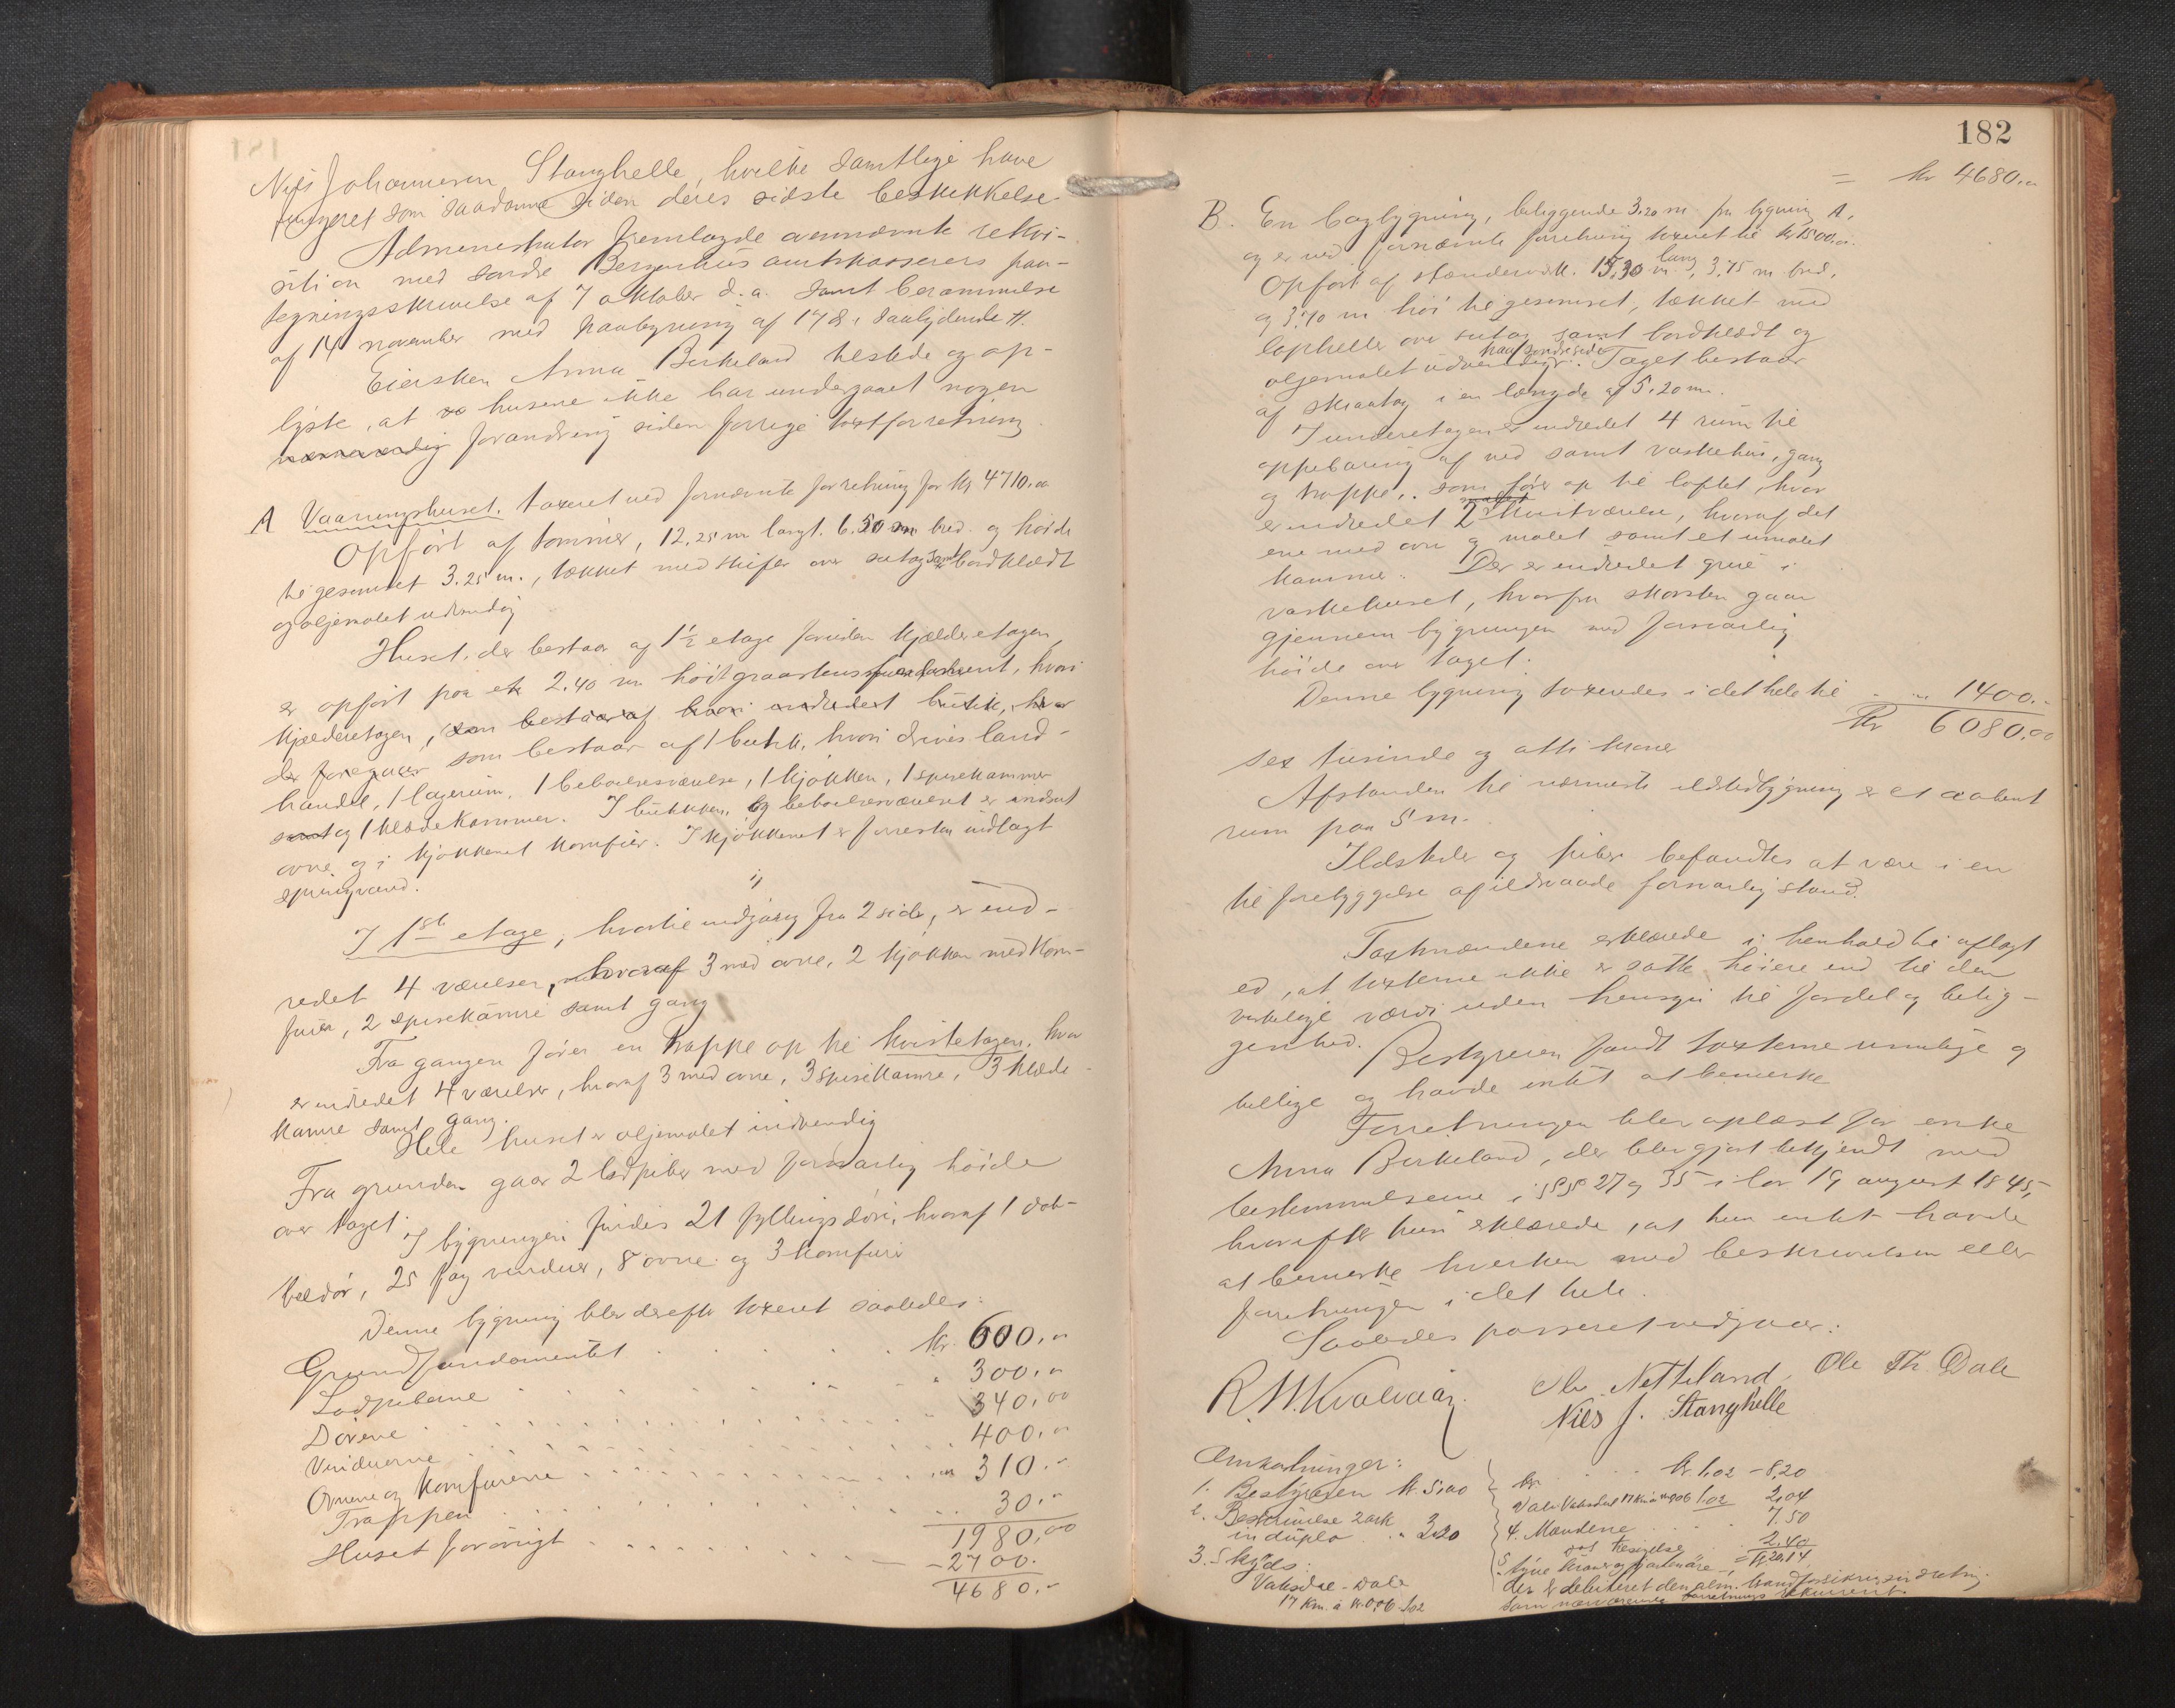 Nils Johannesen Stanghelle, hvilke samtlige have
fungeret som saadanne siden deres sidste beskikkelse.
Administrator fremlagde ovennævnte rekvi-
sition med søndre Bergenhus amtskasserers paa-
tegningsskrivelse af 7 oktober d.a. samt berammelse
af 14 november med paategning af 178, saalydende #.
Eiersken Anna Birkeland tilstede og op-
lyste, at husene ikke har undergaaet nogen
forandring siden forrige taxtforretning.
A Vaaningshuset, taxeret ved fornævnte forretning for kr 4710.00
Opført af tømmer, 12.25 m langt. 6.50 m bred og høide
til gesimset 3.25 m., tækket med skifer over sutag samt bordklædt
og oljemalet udvendig
Huset, der bestaar af 1½ etage foruden kjælderetagen,
er opført paa et 2.40 m høit graastensfundament, hvori
kjælderetagen, som bestaar af hvori indredet butik, hvor
der foregaar som bestaar af 1 butik, hvori drives land-
handel, 1 lagerrum, 1 beboelsesværelse, 1 kjøkken, 1 spisekammer
samt og 1 klædekammer. I butikken og beboelsesværelset er indsat
ovne og i kjøkkenet komfur. I kjøkkenet er forresten indlagt
springvand.
I 1ste etage, hvortil indgang fra 2 sider, er ind-
redet 4 værelser, hvoraf 3 med ovne, 2 kjøkken med kom-
furer, 2 spisekamre samt gang
Fra gangen fører en trappe op til kvistetagen, hvor
er indredet 4 værelser, hvoraf 3 med ovne, 3 spisekamre, 3 klæde-
kamre samt gang.
Hele huset er oljemalet indvendig
Fra grunden gaar 2 lodpiber med forsvarlig høide
over taget.
I bygningen findes 21 fyllingsdøre, hvoraf 1 dob-
beldør, 25 fag vinduer, 8 ovne og 3 komfurer
Denne bygning blev derefter taxeret saaledes:
Grundfundamentet . . . . kr. 600.00
Lodpiberne . . . . " 300.00
Dørene . . . . " 340.00
Vinduerne . . . . 400.00
Ovnene og komfurerne . . . . " 310.-
Trappen . . . . 30.-
1980.00
Huset forøvrigt . . . . -2700.
4680.-
182
= kr 4680.00
B. En bagbygning, beliggende 3.20 m fra bygning A,
og er ved fornævnte forretning taxeret til kr 1500.00.
Opført af stænderverk. 15.30 m lang, 3.75 m bred,
og 3.70 m høi til gesimset, tækket med
lapheller over sutag samt bordklædt og
oljemalet udvendig paa søndre side. Taget bestaar
af skraatag i en længde af 5.20 m.
I underetagen er indredet 4 rum til
opbevaring af ved samt vaskehus, gang
og trappe, som fører op til loftet, hvor
er indredet 2 malet kvistværelser, hvoraf det
ene med ovn og malet samt et umalet
kammer. Der er indredet grue i
vaskehuset, hvorfra skorsten gaar
gjennem bygningen med forsvarlig
høide over taget.
Denne bygning taxeredes i det hele til - " 1400.-
Kr 6080.00
sex tusinde og otti kroner
Afstanden til nærmeste ildstedsbygning er et aabent
rum paa 5 m.
Ildsteder og piber befandtes at være i en
til forebyggelse af ildsvaade forsvarlig stand.
Taxtmændene erklærede i henhold til aflagt
ed, at taxterne ikke er satte høiere end til den
virkelige værdi uden hensyn til fordel og belig-
genhed. Bestyreren fandt taxterne rimelige og
billige og havde intet at bemerke
Forretningen blev oplæst for enke
Anna Birkeland, der blev gjort bekjendt med
bestemmelserne i §§ 27 og 35 i lov 19 august 1845,
hvorefter hun erklærede, at hun intet havde
at bemerke hverken med beskrivelsen eller
forretningen i det hele.
Saaledes passeret vedgaar:
R. M. Kvalvaag. Mo. Netteland, Ole Th. Dale
Nils J. Stanghelle
Omkostninger:
1. Bestyreren kr. 5,00
2. Beskrivelse 2 ark
in duplo . . 3,20
3. Skyds:
Vaksdal - Dale
17 Km. à kr. 0,06 1,02
kr . . . . kr. 1,02 - 8,20
Dale Vaksdal 17 Km à kr 0,06 1,02 2,04
4. Mændene . . . . 7,50
2.40
= kr. 20,14
5. tyve kroner og fjorten øre,
der er debiteret den alm. brandforsikringsindretning